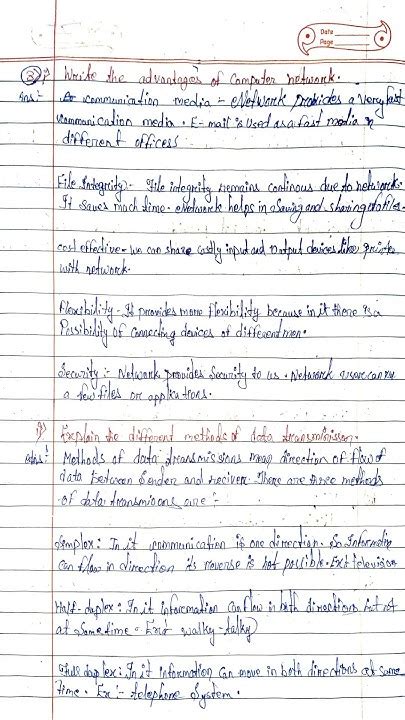 Date
Page
3) i) Write the advantages of computer network.
Ans:- communication media - Network provides a very fast
communication media. E-mail is used as a fast media in
different offices.
File Integrity - File integrity remains continous due to network.
It saves much time. Network helps in saving and sharing of files.
cost effective - we can share costly input and output devices like printer
with network.
flexibility - It provides more flexibility because in it there is a
Possibility of connecting devices of different men.
Security :- Network provides security to us. Network user can
a few files or applications.
Explain the different methods of data transmission.
Ans: Methods of data transmissions mean direction of flow of
data between Sender and reciver. There are three methods
of data transmions are :-
Simplex: In it communication is one direction. So Information
can flow in direction its reverse is not possible. Ex:- television
Half-duplex: In it information can flow in both directions but not
at same time. Ex:- walky-talky
Full duplex: In it information can move in both directions at same
time. Ex :- telephone system.